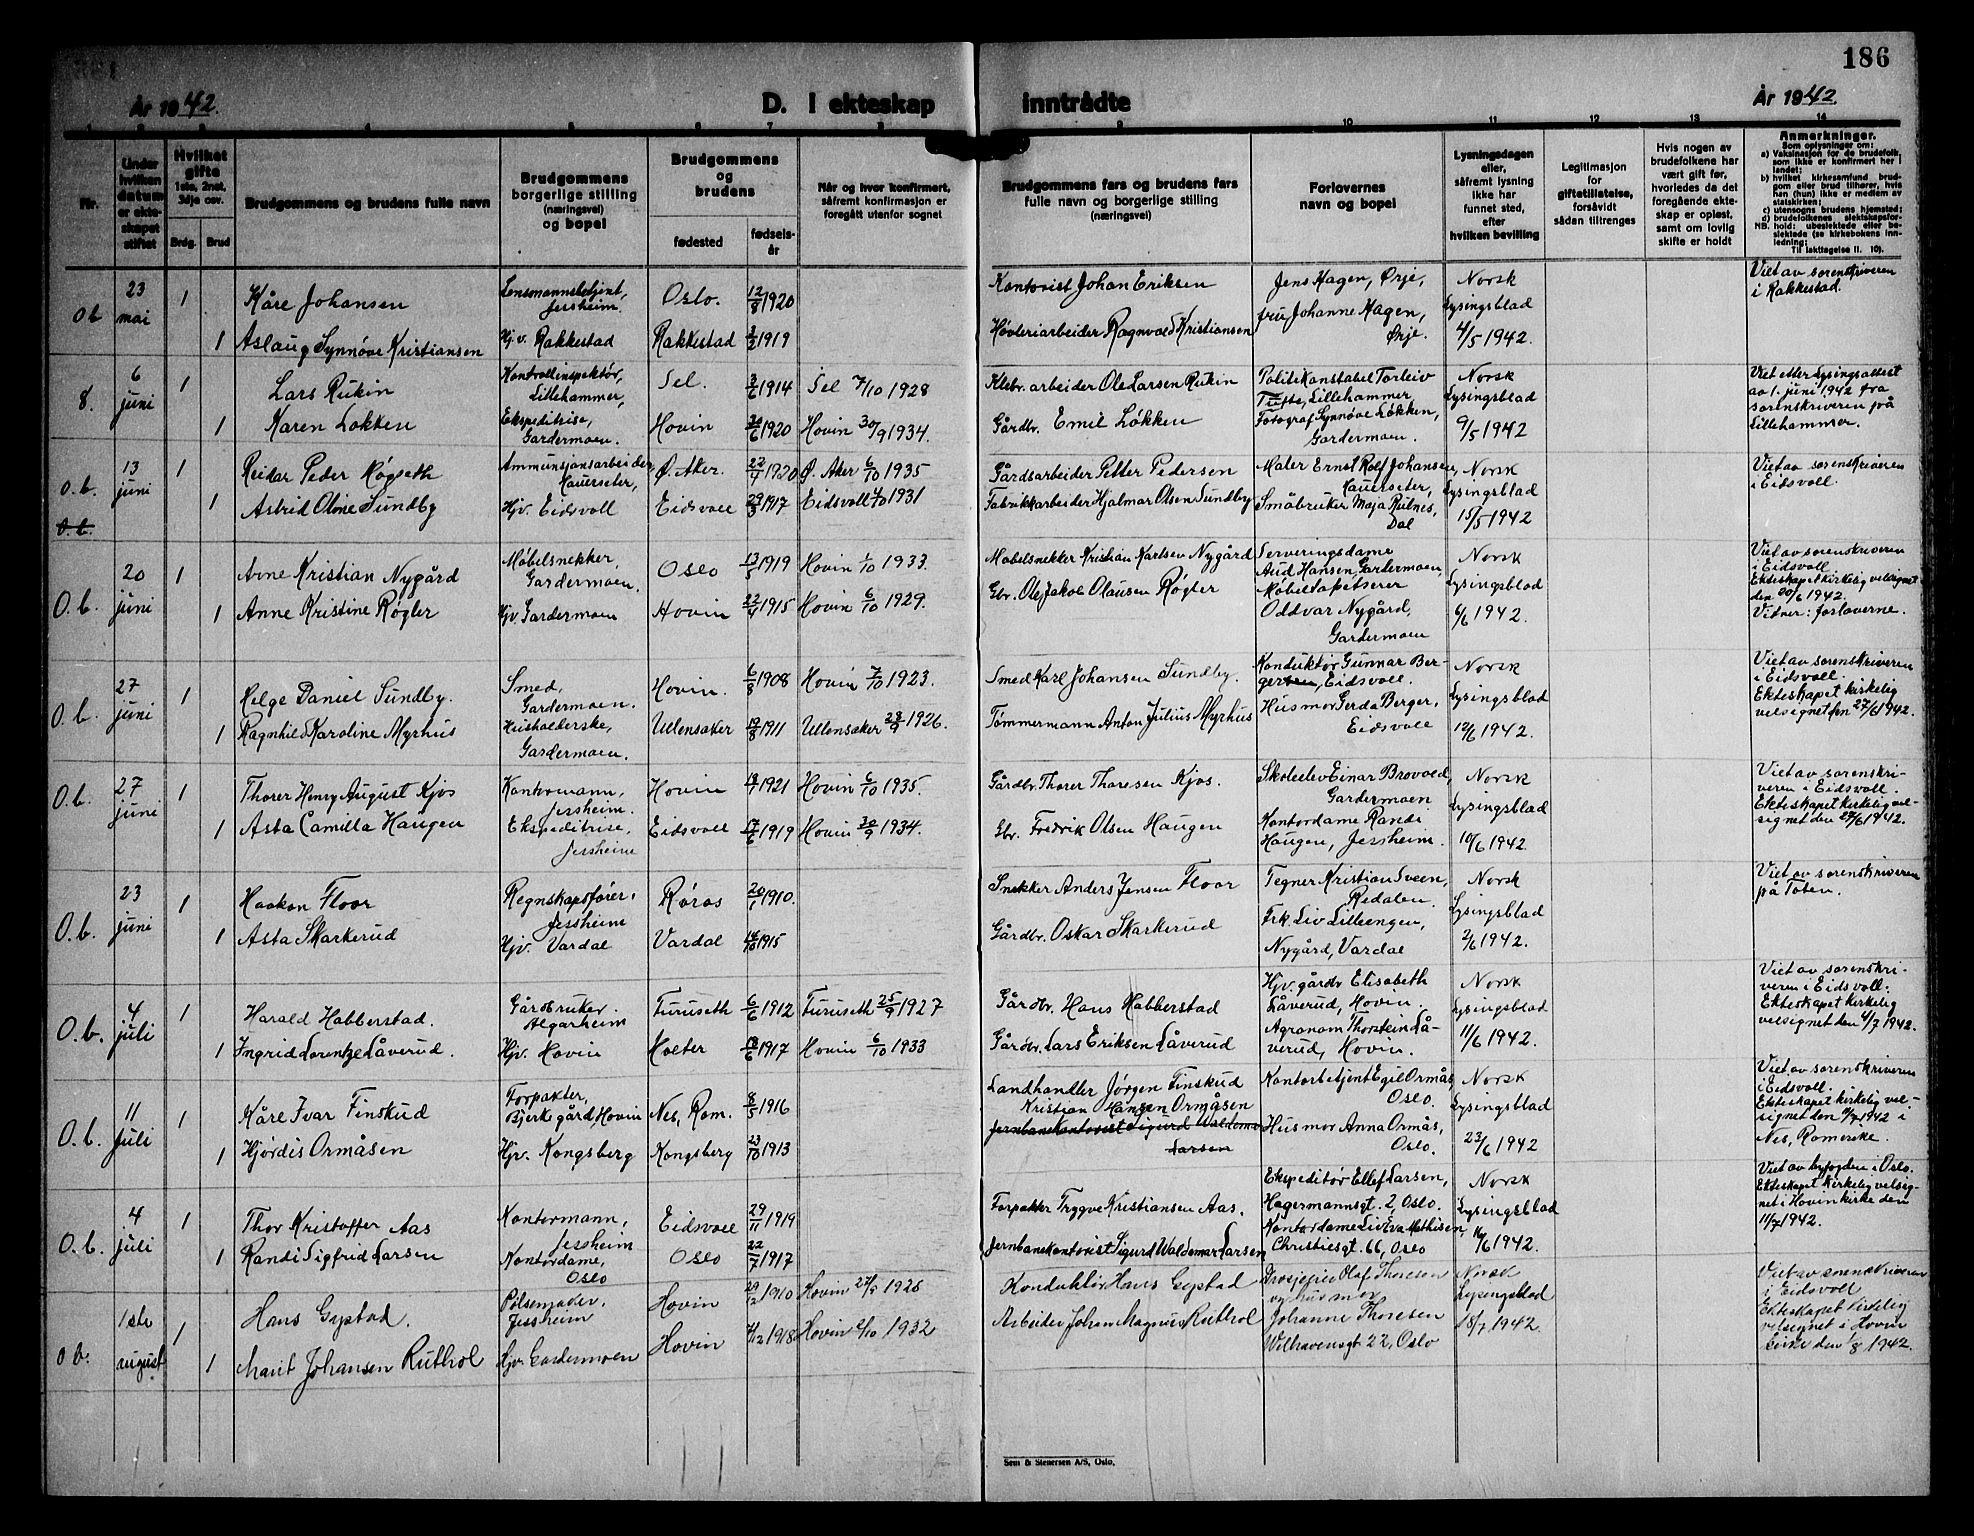 186
År 1942.
D. I ekteskap inntrådte
År 1942.
1 2 3 4 5 6 7 8 9 10 11 12 13 14
Nr.
Under
hvilken
datum
er ekte-
skapet
stiftet
Hvilket
gifte
1ste, 2net,
3dje osv.
Brdg. Brud
Brudgommens og brudens fulle navn
Brudgommens
borgerlige stilling
(næringsvei)
og bopel
Brudgommens
og
brudens
fødested
fødsels-
år
Når og hvor konfirmert,
såfremt konfirmasjon er
foregått utenfor sognet
Brudgommens fars og brudens fars
fulle navn og borgerlige stilling
(næringsvei)
Forlovernes
navn og bopel
Lysningsdagen
eller,
såfremt lysning
ikke har
funnet sted,
efter
hvilken bevilling
Legitimasjon
for
giftetillatelse,
forsåvidt
sådan tiltrenges
Hvis nogen av
brudefolkene har
vært gift før,
hvorledes da det
foregående ekte-
skap er opløst,
samt om lovlig
skifte er holdt
Anmerkninger.
Som oplysninger om:
a) Vaksinasjon for de brudefolk,
som ikke er konfirmert her
i landet;
b) hvilket kirkesamfund brud-
gom eller brud tilhører, hvis
han (hun) ikke er medlem av
statskirken;
c) utensogns brudens hjemsted;
d) brudefolkenes slektskapsfor-
NB. hold: ubeslektede eller be-
slektede (se kirkebokens inn-
ledning;
Til iakttagelse II. 10).
o b
23
mai
1
Kåre Johansen
Lensmannsbetjent,
Jessheim.
Oslo.
12/8 1920
Kontorist Johan Eriksen
Jens Hagen, Ørje,
fru Johanne Hagen,
Ørje.
Norsk
Lysingsblad
4/5 1942.
Viet av sorenskriveren
i Rakkestad.
1
Aslaug Synnøve Kristiansen
Hj.v. Rakkestad
Rakkestad
1919
Høvleriarbeider Ragnvald Kristiansen
8.
6
juni
1
Lars Rukin
Kontrollinspektør,
Lillehammer,
Sel.
1914
Sel 7/10 1928
Klebr. arbeider Ole Larsen Rukin
Politikonstabel Torleiv
Tufte, Lillehammer
Fotograf Synnøve Løkken,
Gardermoen.
Norsk
Lysingsblad
9/5 1942
Viet etter lysingsattest
av 1. juni 1942 fra
sorenskriveren på
Lillehammer.
1
Karen Løkken
Ekspeditrise,
Gardermoen.
Hovin
1920
Hovin 30/9 1934.
Gårdbr. Emil Løkken
o.b.
13
juni
1
Reidar Peder Høgseth
Ammunsjonsarbeider,
Hauerseter,
Ø. Aker.
1920
Ø. Aker 6/10 1935
Gårdsarbeider Petter Pedersen
Maler Ernst Rolf Johansen,
Hauerseter,
Småbruker Maja Rulnes,
Dal
Norsk
Lysingsblad
15/5 1942
Viet av sorenskriveren
i Eidsvoll.
1
Astrid Oline Sundby
Hjv. Eidsvoll
Eidsvoll
29/3 1917
Eidsvoll 4/10 1931
Fabrikkarbeider Hjalmar Olsen Sundby
o.b.
O.b.
20
juni
1
Arne Kristian Nygård
Møbelsnekker,
Gardermoen.
Oslo
13/5 1919
Hovin 1/10 1933.
Møbelsnekker Kristian Karlsen Nygård
Serveringsdame
Aud Hansen, Gardermoen,
Møbeltapetserer
Oddvar Nygård,
Gardermoen
Norsk
Lysingsblad
6/6 1942.
Viet av sorenskriveren
i Eidsvoll.
Ekteskapet kirkelig velsignet
den 20/6 1942.
Vitner: forloverne.
1
Anne Kristine Røgler
Hjv. Gardermoen
Hovin
1915
Hovin 6/10 1929.
Gbr. Ole Jakob Olausen Røgler
O.b.
27
juni
1
Helge Daniel Sundby.
Smed,
Gardermoen.
Hovin.
6/8 1908
Hovin 7/10 1923.
Smed Karl Johansen Sundby.
Konduktør Gunnar Ber-
ger, Eidsvoll.
Husmor Gerda Berger,
Eidsvoll
Norsk
Lysingsblad
12/6 1942.
Viet av sorenskriveren
i Eidsvoll.
Ekteskapet kirkelig
velsignet den 27/6 1942.
1
Ragnhild Karoline Myrhus
Husholderske,
Gardermoen.
Ullensaker
1911
Ullensaker 1926.
Tømmermann Anton Julius Myrhus
O.b.
27
juni
1
Thorer Henry August Kjos
Kontormann,
Jessheim.
Hovin
1921
Hovin 6/10 1935.
Gårdbr. Thorer Thoresen Kjos.
Skoleelev Einar Brovold,
Gardermoen
Kontordame Randi
Haugen, Jessheim.
Norsk
Lysingsblad
10/6 1942.
Viet av sorenskri-
veren i Eidsvoll.
Ekteskapet kirkelig vel-
signet den 27/6 1942.
1
Asta Camilla Haugen
Ekspeditrise,
Jessheim
Eidsvoll
17/6 1919
Hovin 30/9 1934.
Gbr. Fredrik Olsen Haugen
O.b.
23
juni
1
Haakon Floor
Regnskapsfører,
Jessheim
Røros
20/1 1910.
Snekker Anders Jensen Floor
Tegner Kristian Sveen,
Redalen.
Frk. Liv Lilleengen,
Nygård, Vardal
Norsk
Lysingsblad
2/6 1942.
Viet av sorenskriveren
på Toten.
1
Asta Skarkerud
Hjv. Vardal
Vardal
1915
Gårdbr. Oskar Skarkerud
O.b.
4
juli
1
Harald Habberstad.
Gårdbruker.
Algarheim
Furuseth
6/6 1912
Furuseth 25/9 1927
Gårdbr. Hans Habberstad
Hjv. gårdbr Elisabeth
Låverud, Hovin.
Agronom Thorstein Lå-
verud, Hovin.
Norsk
Lysingsblad
11/6 1942.
Viet av sorenskri-
veren i Eidsvoll.
Ekteskapet kirkelig
velsignet den 4/7 1942.
1
Ingrid Lorentze Låverud.
Hjv. Hovin
Holter
1917
Hovin 6/10 1933
Gårdbr. Lars Eriksen Låverud
O.b.
11
juli
1
Kåre Ivar Finskud
Forpakter,
Bjerk gård, Hovin
Nes, Rom.
8/5 1916
Landhandler Jørgen Finskud
Kontorbetjent Egil Ormås,
Oslo.
Husmor Anna Ormås,
Oslo.
Norsk
Lysingsblad
23/6 1942
Viet av sorenskriveren
i Eidsvoll.
Ekteskapet kirkelig vel-
signet den 11/7 1942 i
Nes, Romerike.
1
Hjørdis Ormåsen
Hjv. Kongsberg
Kongsberg
23/10 1913
Kristian Hansen Ormåsen
Jernbanekontorist Sigurd Waldemar
Larsen
O.b.
4
juli
1
Thor Kristoffer Aas
Kontormann,
Jessheim
Eidsvoll
29/11 1919
Forpakter Trygve Kristiansen Aas.
Ekspeditør Ellef Larsen,
Hagermannsgt. 2, Oslo.
Kontordame Liv Eva Mathisen,
Christiesgt. 66, Oslo
Norsk
Lysingsblad
16/6 1942.
Viet av byfogden i Oslo.
Ekteskapet kirkelig velsig-
net i Hovin kirke den
11/7 1942.
1
Randi Sigfrid Larsen
Kontordame,
Oslo
Oslo
22/7 1917
Jernbanekontorist Sigurd Waldemar Larsen
o b.
1ste
august
1
Hans Gystad.
Pølsemaker.
Jessheim
Hovin
29/12 1910
Hovin 1925
Konduktør Hans Gystad
Drosjeeier Olaf Thoresen
og husmor
Johanne Thoresen
Welhavensgt 22, Oslo
Norsk
Lysingsblad
18/7 1942.
Viet av sorenskriveren
i Eidsvoll
Ekteskapet kirkelig
velsignet i Hovin
kirke den 1/8 1942.
1
Marit Johansen Ruthol
Hjv. Gardermoen
Hovin
1918
Hovin 1932
Arbeider Johan Magnus Ruthol
Sem & Stenersen A/S, Oslo.